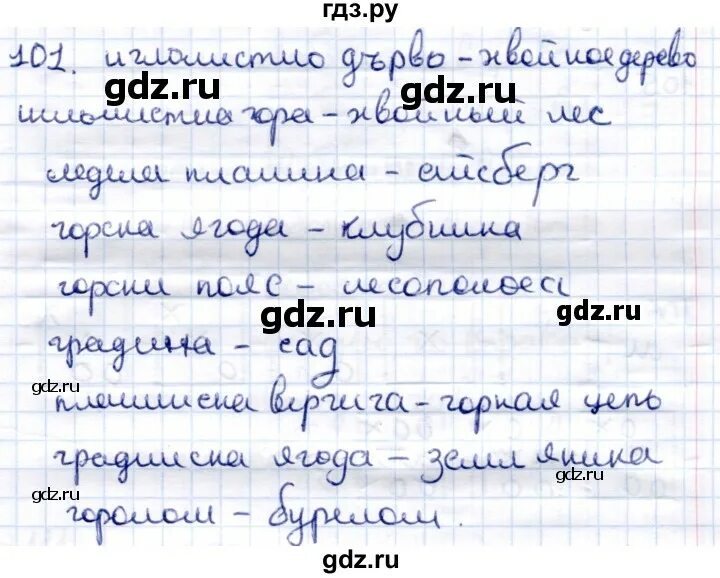 гдз.ру
101. иглолистно дърво - хвойное дерево
gdz.ru gdz.ru
гора - хвойный лес
ледена планина - айсберг
горска ягода - клубника
горски пояс - лесополоса
gdz.ru gdz.ru
градина - сад
gdz.ru
планинска верига - горная цепь
градинска ягода - земляника
gdz.ru gdz.ru
горолом - бурелом.
gdz.ru